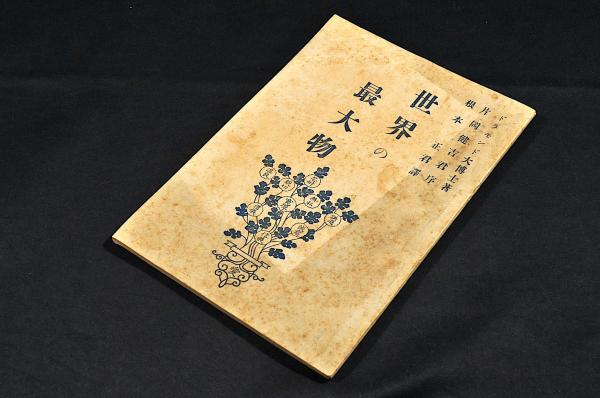 ドラモンド大博士著
片岡健吉君序
根本正君譯
世界の
最大物